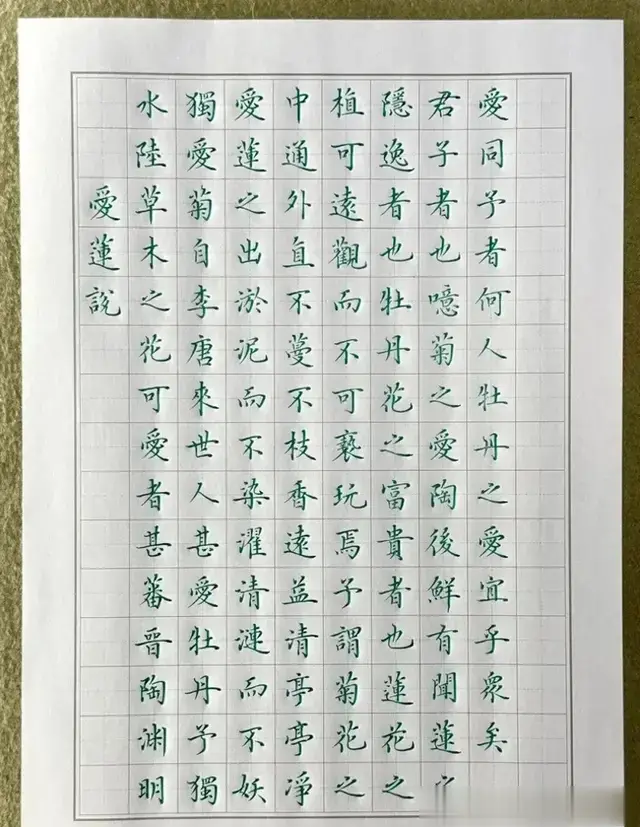 愛蓮說
水陸草木之花可愛者甚蕃晉陶渊明
獨愛菊自李唐來世人甚愛牡丹予獨
愛蓮之出淤泥而不染濯清漣而不妖
中通外直不蔓不枝香遠益清亭亭凈
植可遠觀而不可褻玩焉予謂菊花之
隱逸者也牡丹花之富貴者也蓮花之
君子者也噫菊之愛陶後鮮有聞蓮之
愛同予者何人牡丹之愛宜乎眾矣